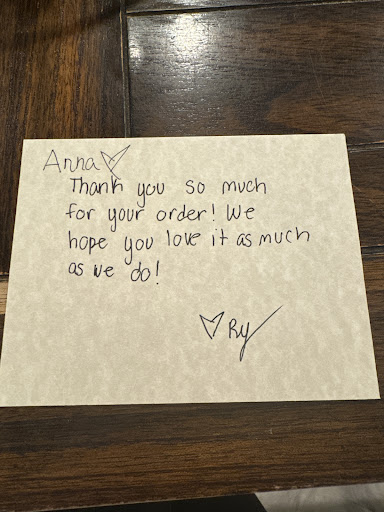 Anna ♡
Thank you so much
for your order! We
hope you love it as much
as we do!
♡ Ry